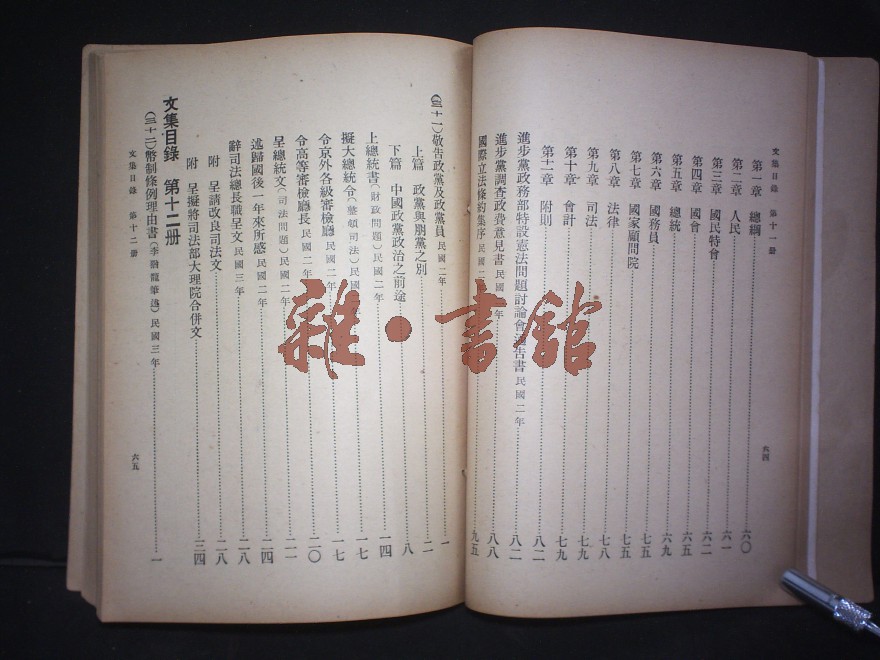 文集目錄 第十一册
第一章 總綱 六〇
第二章 人民 六一
第三章 國民特會 六二
第四章 國會 六五
第五章 總統 六九
第六章 國務員 七五
第七章 國家顧問院 七五
第八章 法律 七八
第九章 司法 七九
第十章 會計 七九
第十一章 附則 八二
進步黨政務部特設憲法問題討論會 吿書 民國二年 八二
進步黨調查政費意見書 民國 年 八八
國際立法條約集序 民國二 九五
六四
(三十一)敬吿政黨及政黨員 民國二年 一
上篇 政黨與朋黨之別 二
下篇 中國政黨政治之前途 八
上總統書(財政問題)民國二年 一四
擬大總統令(整頓司法)民國二年 一七
令京外各級審檢廳 民國二年 一七
令高等審檢廳長 民國二年 二〇
呈總統文(司法問題)民國二年 二一
述歸國後一年來所感 民國二年 二四
辭司法總長職呈文 民國三年 二八
附 呈請改良司法文 二八
附 呈擬將司法部大理院合併文 三四
文集目錄 第十二册
(三十二)幣制條例理由書(李猶龍筆述)民國三年 一
文集目錄 第十二册
六五
雜·書館